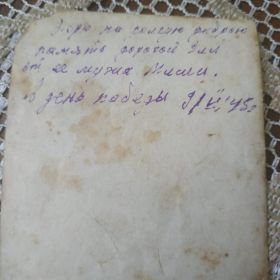 на долгую добрую
память дорогой Эля
от ее мужа Миши.
в день победы 9/V 45г